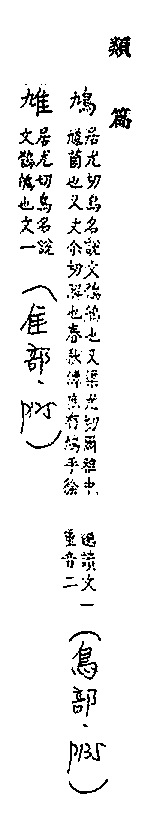 類篇
鳩 居尤切鳥名說文鶻鵃也又渠尤切爾雅中
馗菌也又丈余切解也春秋傳庶有鳩乎徐
邈讀文一
重音二
(鳥部、P135)
雔 居尤切鳥名說
文鶻鵃也文一
(隹部、P125)